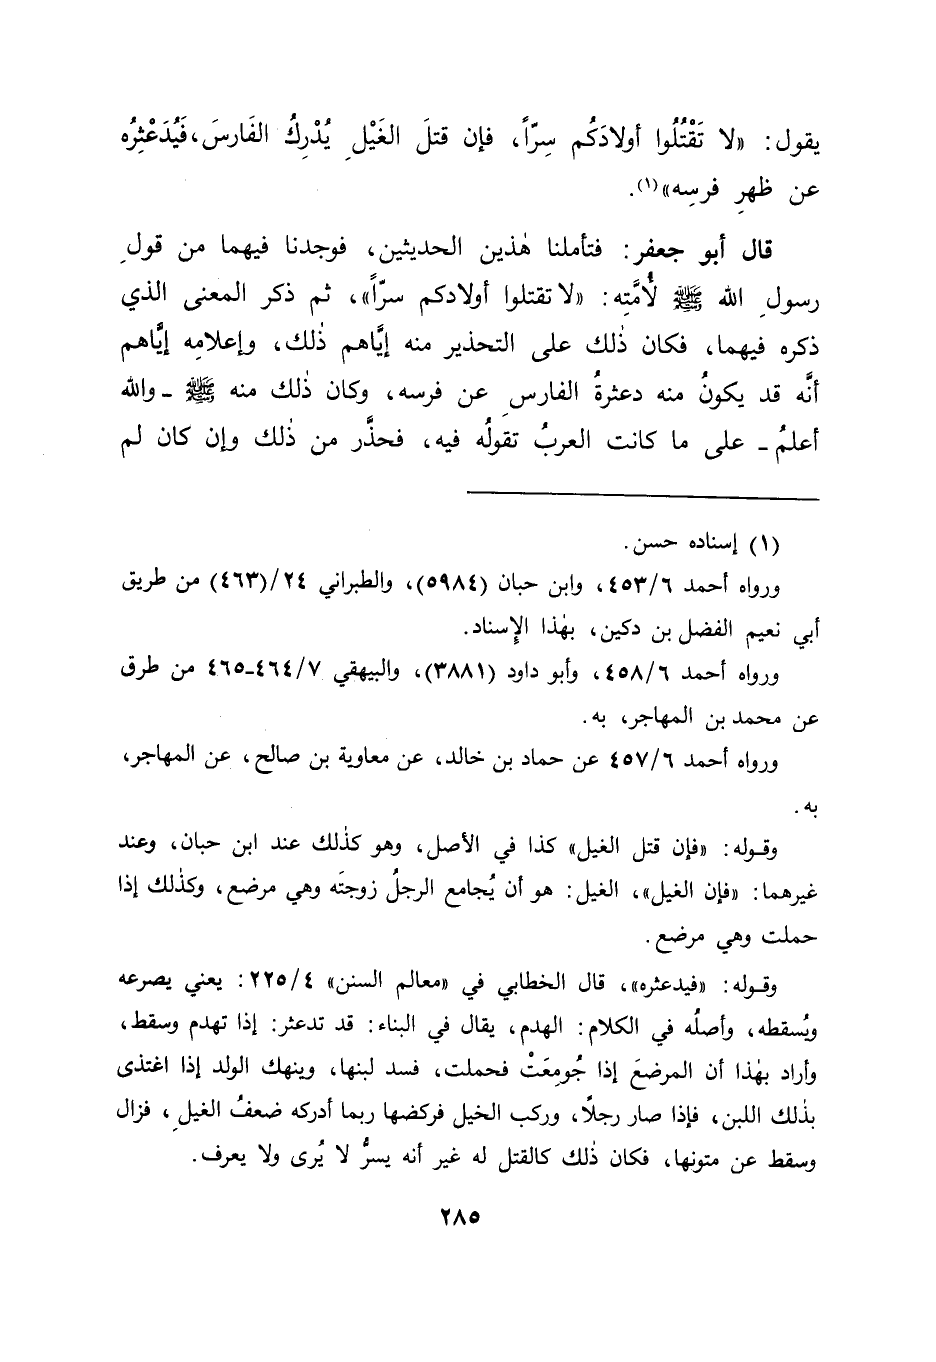 يقول: «لا تَقْتُلُوا أولادَكُم سِرّاً، فإن قتلَ الغَيْلِ يُدْرِكُ الفَارسَ، فَيُدَعْثِرُه
عن ظهرِ فرسِه»(١).
قال أبو جعفر: فتأملنا هٰذين الحديثين، فوجدنا فيهما من قولِ
رسولِ الله ﷺ لأُمَّتِه: «لا تقتلوا أولادكم سرّاً»، ثم ذكر المعنى الذي
ذكره فيهما، فكان ذٰلك على التحذير منه إيَّاهم ذٰلك، وإعلامِه إيَّاهم
أنَّه قد يكونُ منه دعثرةُ الفارسِ عن فرسه، وكان ذٰلك منه ﷺ ـ والله
أعلمُ ـ على ما كانت العربُ تقولُه فيه، فحذَّر من ذٰلك وإن كان لم
(١) إسناده حسن.
ورواه أحمد ٤٥٣/٦، وابن حبان (٥٩٨٤)، والطبراني ٢٤/(٤٦٣) من طريق
أبي نعيم الفضل بن دكين، بهٰذا الإسناد.
ورواه أحمد ٤٥٨/٦، وأبو داود (٣٨٨١)، والبيهقي ٤٦٤/٧ـ٤٦٥ من طرق
عن محمد بن المهاجر، به.
ورواه أحمد ٤٥٧/٦ عن حماد بن خالد، عن معاوية بن صالح، عن المهاجر،
به.
وقوله: «فإن قتل الغيل» كذا في الأصل، وهو كذٰلك عند ابن حبان، وعند
غيرهما: «فإن الغيل»، الغيل: هو أن يُجامع الرجلُ زوجتَه وهي مرضع، وكذٰلك إذا
حملت وهي مرضع.
وقوله: «فيدعثره»، قال الخطابي في «معالم السنن» ٢٢٥/٤: يعني يصرعه
ويُسقطه، وأصلُه في الكلام: الهدم، يقال في البناء: قد تدعثر: إذا تهدم وسقط،
وأراد بهٰذا أن المرضعَ إذا جُومِعَتْ فحملت، فسد لبنها، وينهك الولد إذا اغتذى
بذٰلك اللبن، فإذا صار رجلاً، وركب الخيل فركضها ربما أدركه ضعفُ الغيلِ، فزال
وسقط عن متونها، فكان ذٰلك كالقتل له غير أنه يسرٌّ لا يُرى ولا يعرف.
٢٨٥